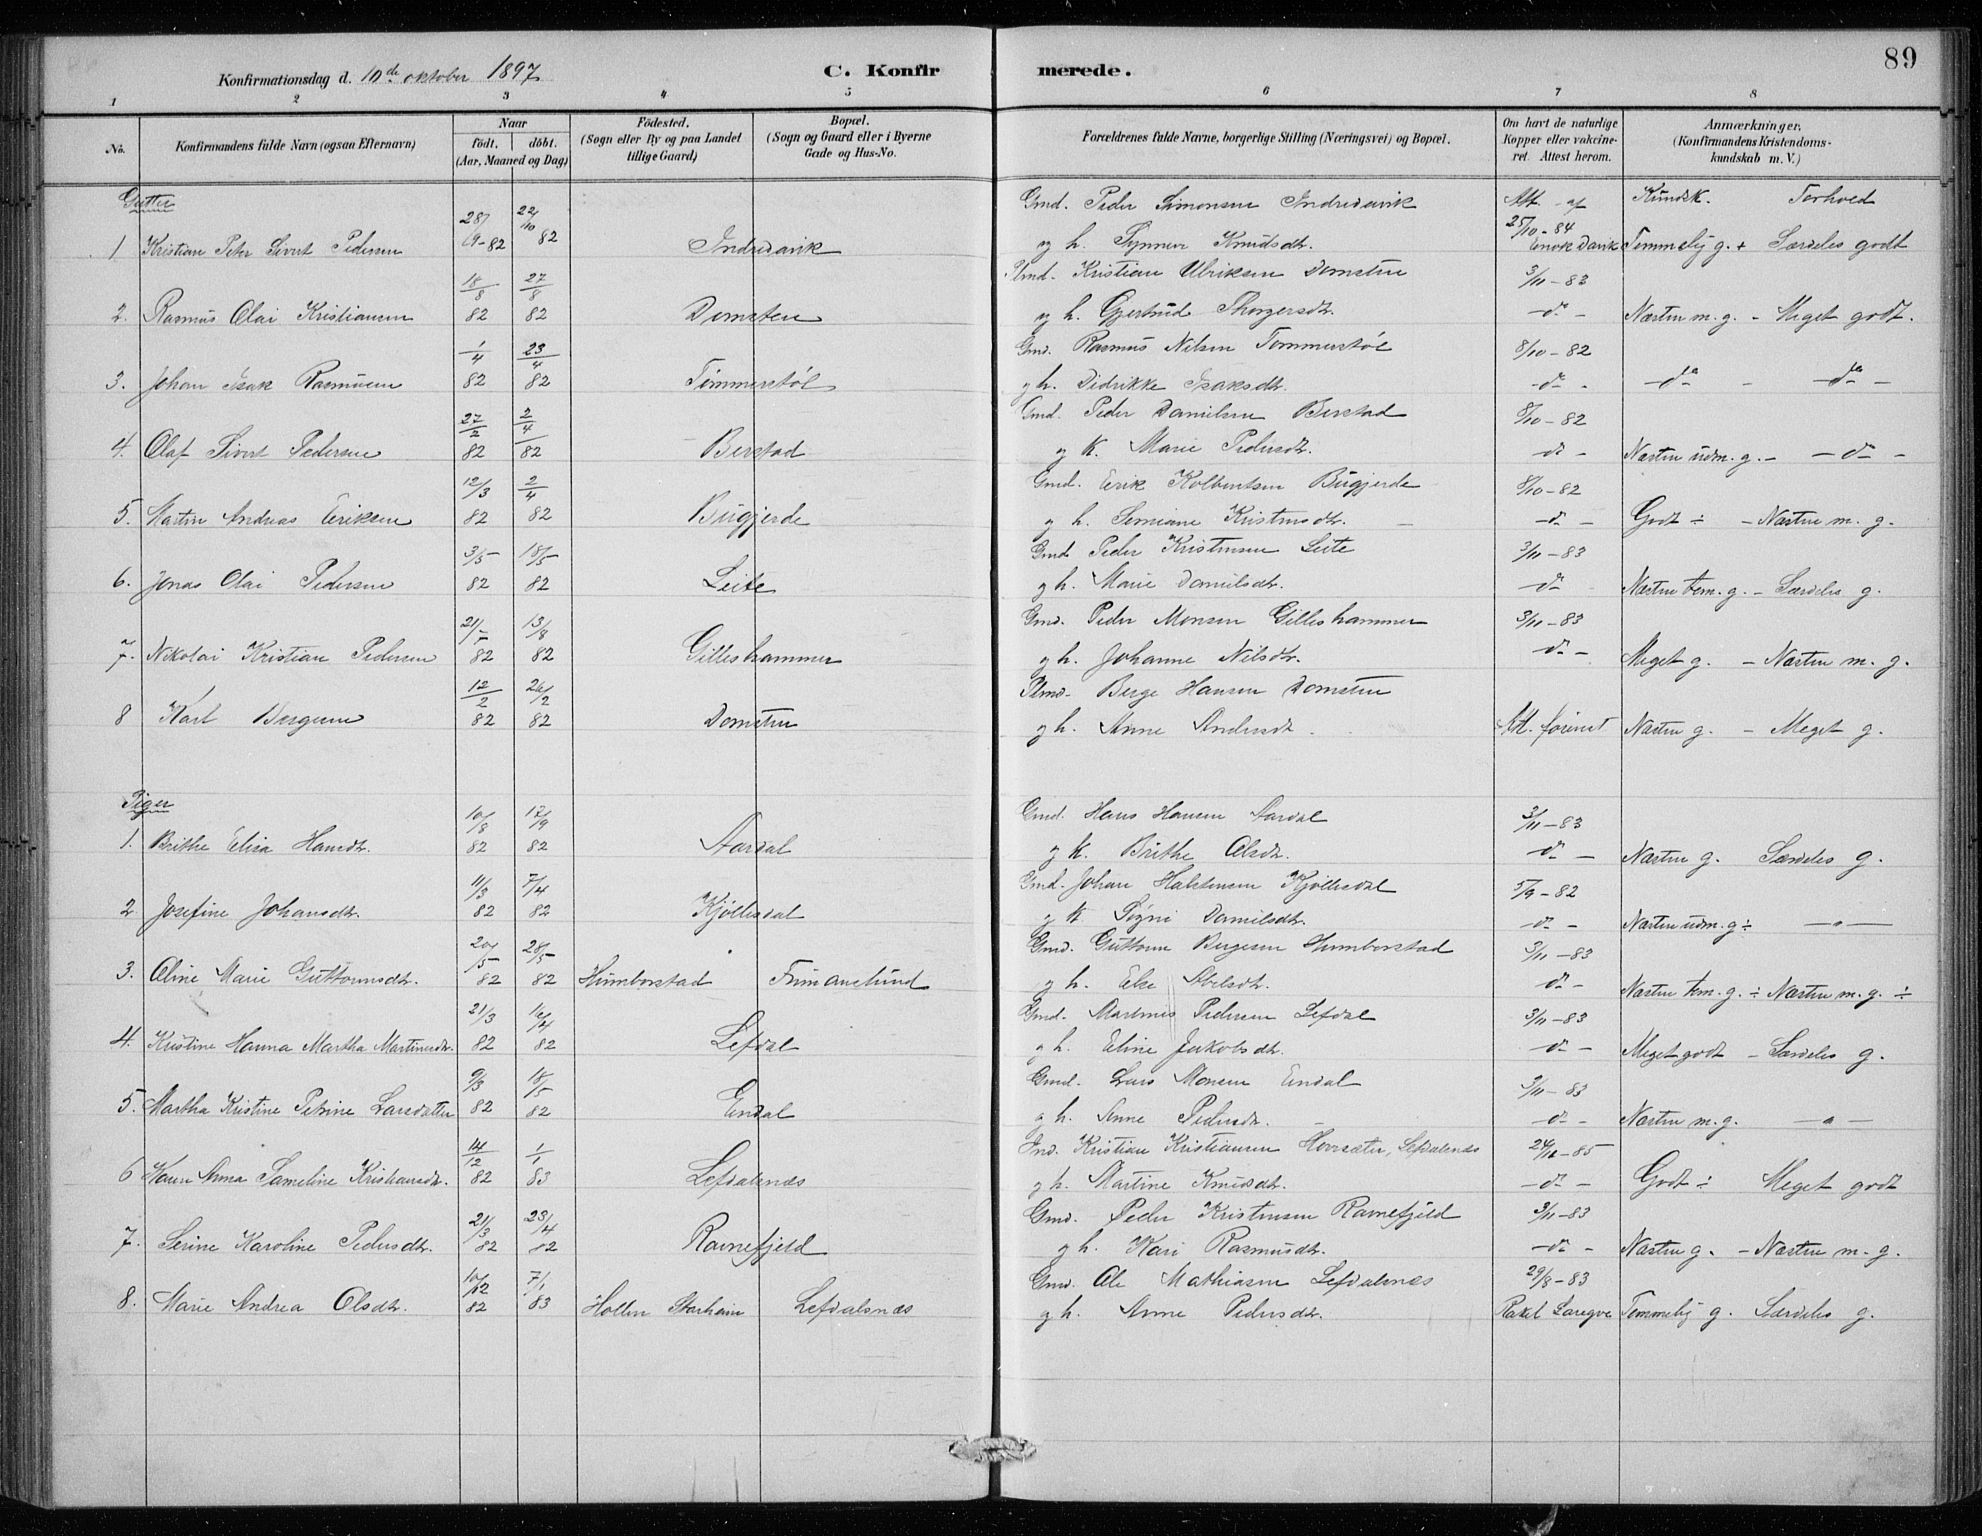 89
Konfirmationsdag d. 10de oktober 1897
C. Konfirmerede.
1 2 3 4 5 6 7 8
No.
Konfirmandens fulde Navn (ogsaa Efternavn)
Naar
födt. döbt.
(Aar, Maaned og Dag)
Födested.
(Sogn eller By og paa Landet
tillige Gaard)
Bopæl.
(Sogn og Gaard eller i Byerne
Gade og Hus-No.
Forældrenes fulde Navne, borgerlige Stilling (Næringsvei) og Bopæl.
Om havt de naturlige
Kopper eller vakcine-
ret. Attest herom.
Anmærkninger.
(Konfirmandens Kristendoms-
kundskab m. V.)
Gutter
Gmd. Peder Simonsen Indredavik Att. af Kundsk. Forhold
1 Kristian Peter Sivert Pedersen 28/9-82 22/10 82 Indredavik og h. Synnev Knudsdtr. 25/10-84 Enok Davik Temmelig g. + Særdeles godt
Plmd. Kristian Ulriksen Domsten 3/11-83
2. Rasmus Olai Kristiansen 18/8 82 27/8 82 Domsten og h. Gjertrud Thorgersdtr. -do- Næsten m. g. - Meget godt.
Gmd. Rasmus Nilsen Tømmerstøl 8/10-82
3. Johan Isak Rasmusen 1/4 82 23/4 82 Tømmerstøl og h. Didrikke Isaksdtr. -do- -do- -do-
Gmd. Peder Danielsen Berstad 8/10-82
4. Olaf Sivert Pedersen 27/2 82 2/4 82 Berstad og k. Marie Pedersdtr. do- Næsten udm. g. - -do-
Gmd. Erik Kolbentsen Bugjerde 8/10-82
5. Martin Andreas Eriksen 12/3 82 2/4 82 Bugjerde og h. Semine Kristensdtr. -do- Godt ÷ - Næsten m. g.
Gmd Peder Kristensen Leite 3/11-83
6. Jonas Olai Pedersen 3/5 82 18/5 82 Leite og h. Marie Danielsdtr. do- Næsten tem. g. - Særdeles g.
Gmd. Peder Monsen Gilleshammer 3/11-83
7. Nikolai Kristian Pedersen 21/7 82 13/8 82 Gilleshammer og h. Johanne Nilsdtr. do- Meget g. - Næsten m. g.
Plmd. Berge Hansen Domsten
8 Karl Bergesen 12/2 82 26/2 82 Domsten og h. Anne Andersdtr. Att. forevist Næsten g. - Meget g.
Piger
Gmd. Hans Hansen Aardal 3/11-83
1. Brithe Elisa Hansdtr. 10/8 82 17/9 82 Aardal og k. Brithe Olsdtr. do- Næsten g. Særdeles g.
Gmd. Johan Halstensen Kjøllesdal 5/9-82
2 Josefine Johansdtr. 11/3 82 7/4 82 Kjøllesdal og k. Søgni Danielsdtr. -do- Næsten udm. g ÷ -"-
Gmd. Guttorm Bergesen Humborstad 3/11-83
3. Oline Marie Guttormsdtr. 20/5 82 28/5 82 Humborstad og h. Else Abelsdtr. do- Næsten tem. g. ÷ Næsten m. g. ÷
Gmd. Martinus Pedersen Lefdal 3/11-83
4. Kristine Hanna Martha Martinusdtr. 21/3 82 16/4 82 Lefdal og h. Eline Jakobsdtr. do- Meget godt - Særdeles g.
Gmd. Lars Monsen Endal 3/11-83
5. Martha Kristine Petrine Larsdatter 9/3 82 18/5 82 Endal og h. Anne Pedersdtr. -do- Næsten m. g. -"-
Ind. Kristian Kristiansen Lefdalsnæs
6 Karen Anna Sameline Kristiansdtr. 14/12 82 1/1 83 Lefdalsnæs og h. Martine Knudsdtr. -do- Godt ÷ Meget godt
Gmd. Peder Kristensen Ravnefjeld 3/11-83
7. Serine Karoline Pedersdtr. 21/3 82 23/4 82 Ravnefjeld og h. Kari Rasmusdtr. -do- Næsten g. - Næsten m. g.
Gmd. Ole Mathiasen Lefdalsnæs 29/8-83
8. Marie Andrea Olsdtr. 10/12 82 7/1 83 Hollen Starheim Lefdalsnæs og h. Anne Pedersdtr. Rakel Temmelig g. Særdeles g.